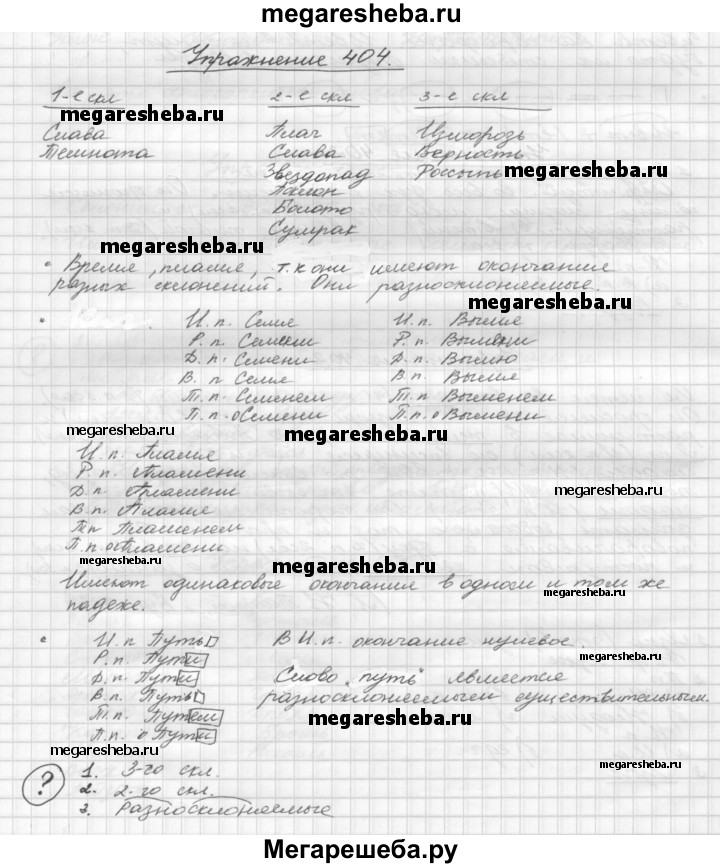 megaresheba.ru
Упражнение 404.
1-е скл 2-е скл 3-е скл
megaresheba.ru
Слава Плач Изморозь
Темнота Слава Верность
Звездопад Россыпь megaresheba.ru
Болото
Сумрак
megaresheba.ru
Время, пламя, т.к они имеют окончания
разных склонений. Они разносклоняемые.
megaresheba.ru
И.п. Семя И.п. Вымя
Р.п. Семени Р.п. Вымени
Д.п. Семени Д.п. Вымю
В.п Семя В.п. Вымя
Т.п. Семенем Т.п Выменем
П.п. о Семени П.п. о Вымени
megaresheba.ru
megaresheba.ru
И.п. Пламя
Р.п. Пламени
Д.п. Пламени
megaresheba.ru
В.п. Пламя
Т.п Пламенем
П.п. о Пламени
megaresheba.ru
megaresheba.ru
Имеют одинаковые окончания в одном и том же
падеже.
И.п Путь В И.п. окончание нулевое.
Р.п. Пути
megaresheba.ru
Д.п. Пути Слово "путь" является
В.п. Путь разносклоняемым существительным.
Т.п. Путем megaresheba.ru
П.п. о Пути
megaresheba.ru
megaresheba.ru
? 1. 3-го скл.
2. 2-го скл.
3. Разносклоняемые
Мегарешеба.ру